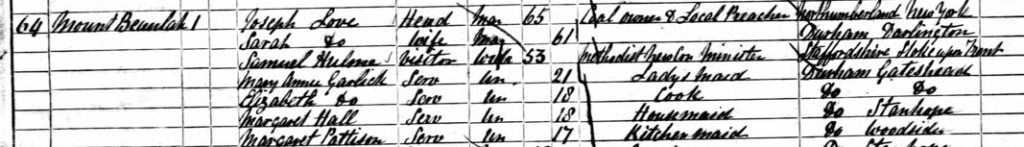 64 Mount Beulah 1 Joseph Love Head Mar 65 Coal owner & Local Preacher Northumberland New York
Sarah Do Wife Mar 61 Durham Darlington
Samuel Hulme Visitor Widr 53 Methodist New Con Minister Staffordshire Stoke upon Trent
Mary Annie Garlick Serv Un 21 Ladys Maid Durham Gateshead
Elizabeth Do Serv Un 18 Cook Do Do
Margaret Hall Serv Un 18 Housemaid Do Stanhope
Margaret Pattison Serv Un 17 Kitchen maid Do Woodside